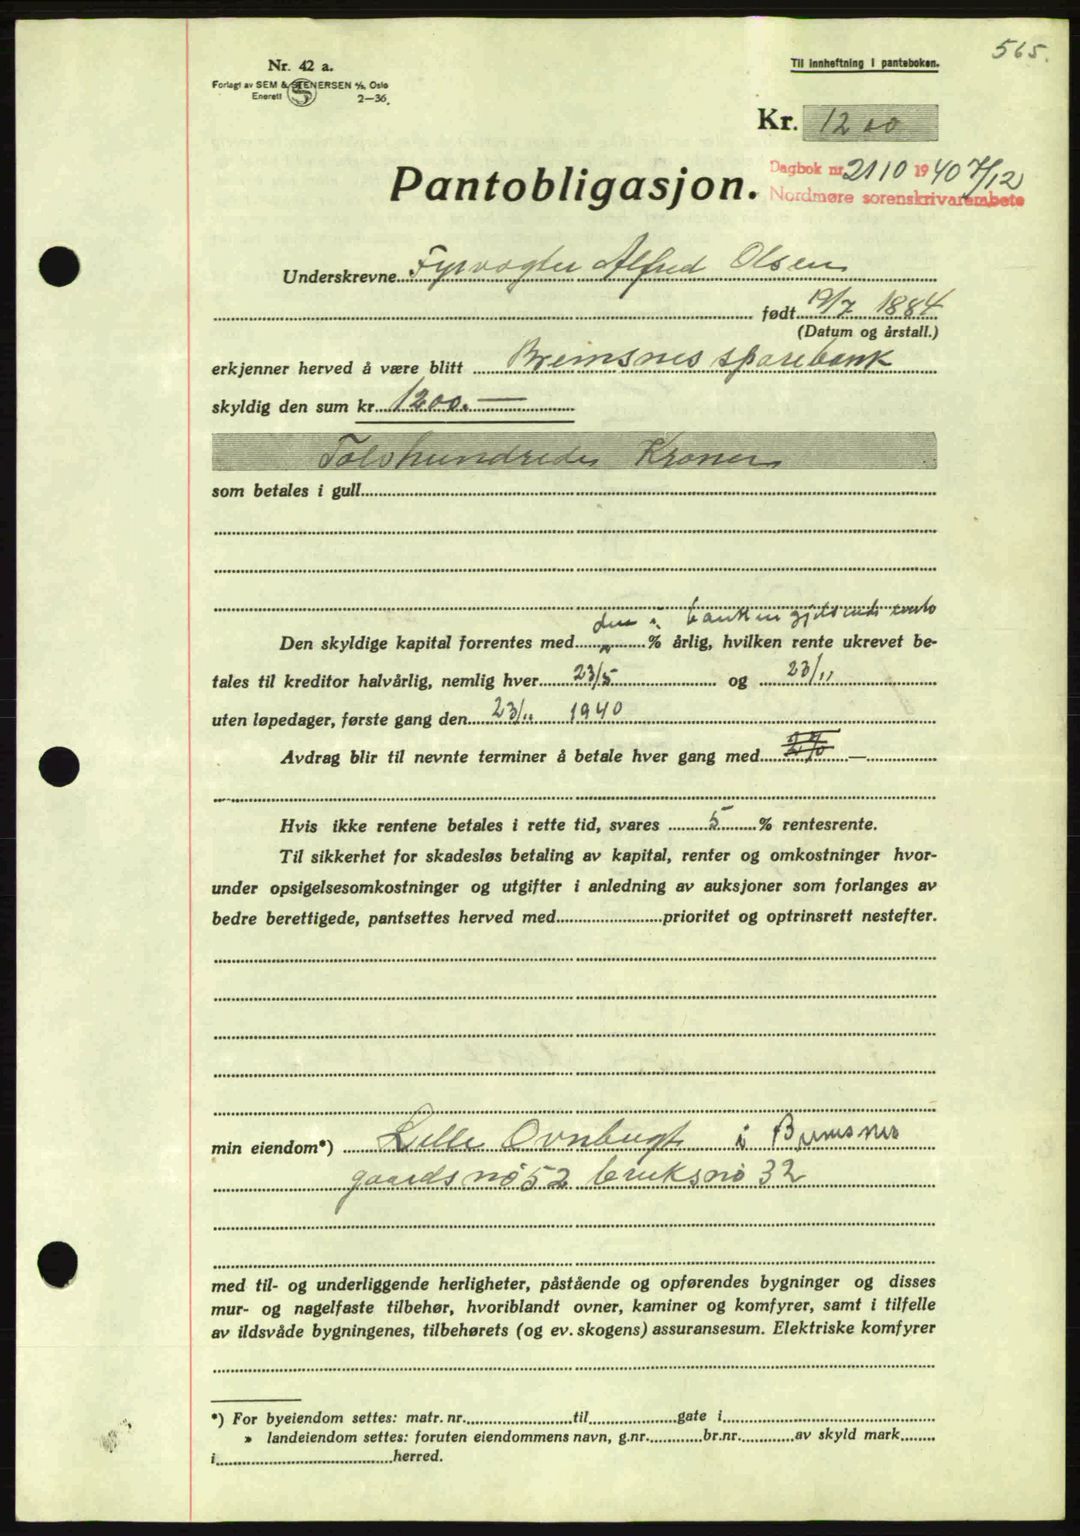 565.
Nr. 42 a.
Til innheftning i panteboken.
Forlagt av SEM & STENERSEN A/S, Oslo
Enerett 2-36.
Kr. 1200
Pantobligasjon.
Dagbok nr. 2110 1940 7/12
Nordmøre sorenskrivarembete
Underskrevne Fyrvogter Alfred Olsen
født 19/7 1884
(Datum og årstall.)
erkjenner herved å være blitt Bremsnes sparebank
skyldig den sum kr. 1200.—
Tolvhundrede Kroner
som betales i gull
den i banken gjeldende rente
Den skyldige kapital forrentes med % årlig, hvilken rente ukrevet be-
tales til kreditor halvårlig, nemlig hver 23/5 og 23/11
uten løpedager, første gang den 23/11 1940
Avdrag blir til nevnte terminer å betale hver gang med —
Hvis ikke rentene betales i rette tid, svares 5 % rentesrente.
Til sikkerhet for skadesløs betaling av kapital, renter og omkostninger hvor-
under opsigelsesomkostninger og utgifter i anledning av auksjoner som forlanges av
bedre berettigede, pantsettes herved med prioritet og optrinsrett nestefter.
min eiendom*) Lille Ovnbugt i Bremsnes
gaardsnö 52 bruksnö 32
med til- og underliggende herligheter, påstående og opførendes bygninger og disses
mur- og nagelfaste tilbehør, hvoriblandt ovner, kaminer og komfyrer, samt i tilfelle
av ildsvåde bygningenes, tilbehørets (og ev. skogens) assuransesum. Elektriske komfyrer
*) For byeiendom settes: matr. nr. til gate i
» landeiendom settes: foruten eiendommens navn, g.nr. br.nr. av skyld mark
i herred.